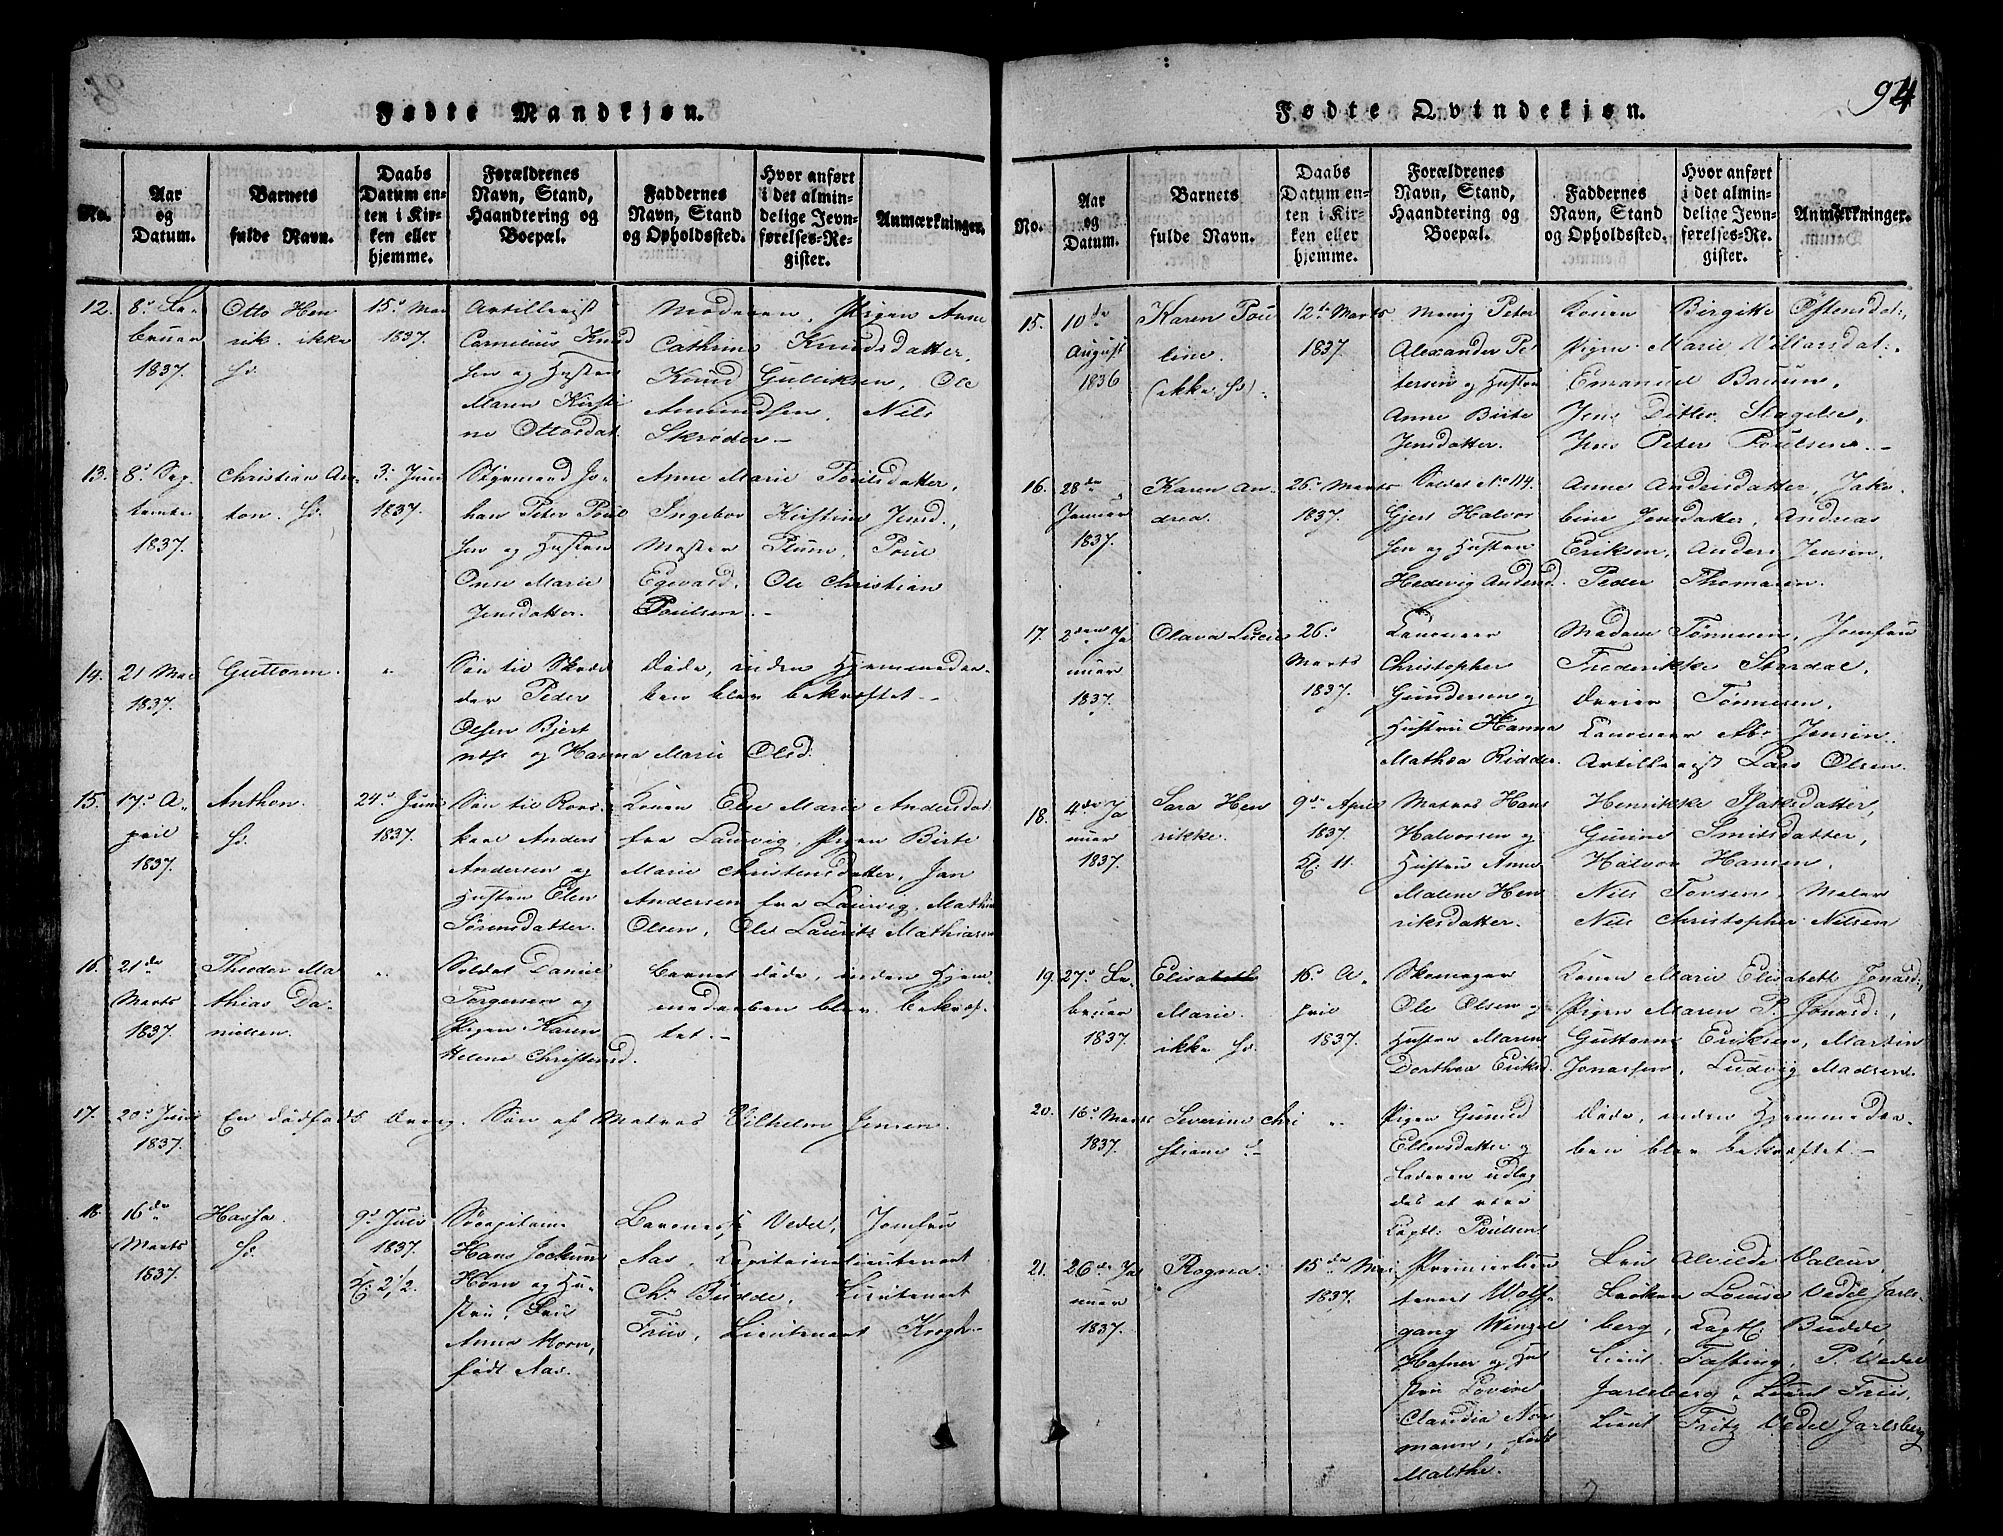 94
Fødte Mandkjøn.
No.
Aar
og
Datum.
Barnets
fulde Navn.
Daabs
Datum en-
ten i Kir-
ken eller
hjemme.
Forældrenes
Navn, Stand,
Haandtering og
Boepæl.
Faddernes
Navn, Stand
og Opholdssted.
Hvor anført
i det almin-
delige Jevn-
førelses-Re-
gister.
Anmærkninger.
12.
8de Fe-
bruar
1837.
Otto Hen
rik. ikke
hd.
15de Mai
1837.
Artillerist
Cornelius Knud
sen og Hustru
Maren Kirsti
ne Ottosdat.
Moderen, Pigen Anne
Cathrine Knudsdatter,
Knud Gulliksen, Ole
Amundsen, Nils
Skrøder.—
13.
8de Sep
tembr
1837.
Christian An-
ton. hd.
3. Juni
1837.
Styrmand Jo-
han Peter Poul
sen og Hustru
Ones Marie
Jensdatter.
Anne Marie Poulsdatter,
Ingebor Kirstine Jensd.,
Mester Plum, Poul
Egevald, Ole Christian
Poulsen.—
14.
21 Mai
1837.
Guttorm.
"
Søn til Skræd
der Peder
Olsen Bjert
næs og Hanna Marie Olsd.
døde, inden Hjemmedaa-
ben blev bekræftet.—
15.
17de A-
pril
1837.
Anthon.
hd.
24de Juni
1837.
Søn til
Anders
Andersen og
Hustru Elen
Sørensdatter.
Konen Else Marie Andersdat.
fra Laurvig, Pigen Birte
Marie Christensdatter, Jan
Andersen fra Laurvig, Mathia
Olsen, Ole Laurits Mathiasen
16.
21de
Marts
1837.
Theodor Ma
thias Da-
nielsen.
"
Soldat Daniel
Torgersen og
Pigen Karen
Helene Christensd.
Barnet døde, inden Hjem
medaaben blev bekræf-
tet.—
17.
20de Juni
1837.
En dødfødt dreng. Søn af Matros Vilhelm Jensen.
18.
16de
Marts
1837.
hd.
9de Juli
1837.
Kl: 2 1/2.
Søcapitaine
Hans Jochum
Horn og Hu-
stru, Fru
Anna Horn,
født Aas.
Baronesse Vedel, Jomfru
Aas, Capitainlieutenant
Chr. Budde, Lieutenant
Friis, Lieutenant Krogh.—
Fødte Qvindekjøn.
No.
Aar
og
Datum.
Barnets
fulde Navn.
Daabs
Datum en-
ten i Kir-
ken eller
hjemme.
Forældrenes
Navn, Stand,
Haandtering og
Boepæl.
Faddernes
Navn, Stand
og Opholdssted.
Hvor anført
i det almin-
delige Jevn-
førelses-Re-
gister.
Anmærkninger.
15.
10de
August
1836
Karen Pou
line.
(ikke hd).
12te Marts
1837.
Menig Peter
Alexander Pe
tersen og Hustru
Anne Birte
Jensdatter.
Konen Birgitte Østensdat.,
Pigen Marie Villarsdat.,
Emanuel Bauun,
Jens Ditlev Slagelse,
Jens Peter Poulsen.—
16.
28de
Januar
1837.
Karen An-
drea.
26. Marts
1837.
Soldat No 114.
Gjert Halvor
sen og Hustru
Hedevig Andersd.
Anne Andersdatter, Jako
bine Jensdatter, Andreas
Eriksen, Anders Jensen,
Peder Thomasen.
17.
2den Ja
nuar
1837.
Olava Lucie
26de
Marts
1837.
Canoneer
Christopher
Gundersen og
Hustru Hanna
Mathea Ridder.
Madam Tønnesen, Jomfru
Frederikke Stardal,
Dreier Tønnesen,
Canoneer Abr. Jensen.
Artillerist Lars Olsen.
18.
4de Ja
nuar
1837.
Sara Hen
rikke.
9de April
1837.
Kl: 11.
Matros Hans
Halvorsen og
Hustru Anne
Malene Hen
riksdatter.
Henrikke Slaksdatter,
Gurine Smitsdatter,
Halvor Hansen,
Nils Torsen, Maler
Nils Christopher Nilsen
19.
27de Fe-
bruar
1837.
Elisabeth
Marie.
ikke hd.
16de A-
pril
1837.
Skomager
Ole Olsen og
Hustru Maren
Dorthea Eriksd.
Konen Marie Elisabeth Jonasd.,
Pigen Maren P. Jonasd.,
Guttorm Eriksen, Martin
Jonassen, Ludvig Madsen.
20.
16de Marts
1837.
Severine Chri
stiane
"
Pigen Gunild
Ellensdatter og
Faderen udlag
des at være
Captl: Poulsen.
døde, inden Hjemmedaa
ben blev bekræftet.—
21.
26de Ja
nuar
1837.
Rogna.
15de Mai
1837.
Premierlieu
tenant Wolf-
gang Winzel
Hafner og Hu
stru Lovise
Claudia Nor
mann, født
Malthe.
Fru Alvilde Valeur
Frøken Louise Vedel Jarls-
berg, Captl: Budde,
Lieut. Fasting, P. Vedel
Jarlsberg, Lieut Friis,
Lieut Fritz Vedel Jarlsberg